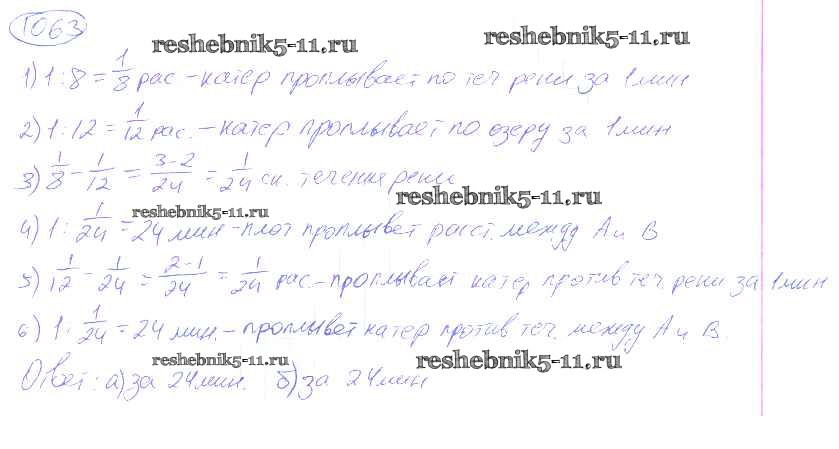 1063
reshebnik5-11.ru reshebnik5-11.ru
1) 1 : 8 = 1/8 рас - катер проплывает по теч реки за 1 мин
2) 1 : 12 = 1/12 рас. - катер проплывает по озеру за 1 мин
3) 1/8 - 1/12 = (3-2)/24 = 1/24 ск. течения реки
reshebnik5-11.ru reshebnik5-11.ru
4) 1 : 1/24 = 24 мин - плот проплывет расст. между А и В
5) 1/12 - 1/24 = (2-1)/24 = 1/24 рас. - проплывает катер против теч. реки за 1 мин
6) 1 : 1/24 = 24 мин. - проплывет катер против теч. между А и В.
reshebnik5-11.ru reshebnik5-11.ru
Ответ: а) за 24 мин. б) за 24 мин